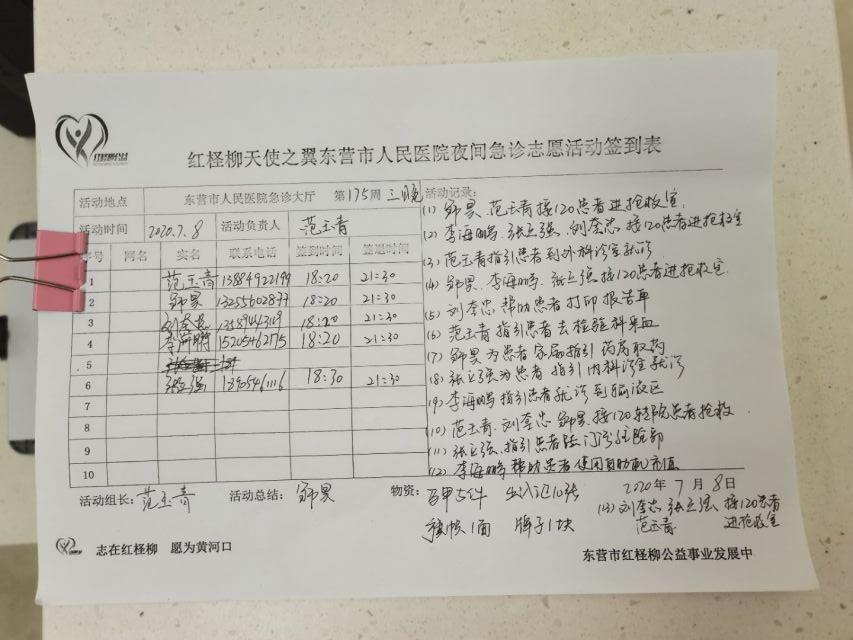 红柽柳天使之翼东营市人民医院夜间急诊志愿活动签到表
活动地点 东营市人民医院急诊大厅 第175周 三晚
活动时间 2020.7.8 活动负责人 范玉青
序号 网名 实名 联系电话 签到时间 签退时间
1 范玉青 13884922199 18:20 21:30
2 郭昊 13255602877 18:20 21:30
3 刘奎忠 18:20 21:30
4 李海鹏 15205462715 18:20 21:30
5
6 张立强 18:30 21:30
7
8
9
10
活动记录:
(1) 郭昊、范玉青接120患者进抢救室
(2) 李海鹏、张立强、刘奎忠 接120患者进抢救室
(3) 范玉青指引患者到外科诊室就诊
(4) 郭昊、李海鹏、张立强接120患者进抢救室
(5) 刘奎忠 帮助患者打印报告单
(6) 范玉青 指引患者去检验科采血
(7) 郭昊为患者家属指引药房取药
(8) 张立强为患者指引内科诊室就诊
(9) 李海鹏指引患者就诊到输液区
(10) 范玉青、刘奎忠 郭昊、接120转院患者抢救
(11) 张立强、指引患者 门诊住院部
(12) 李海鹏帮助患者使用自助机充值
2020年7月8日
(13) 刘奎忠 张立强、接120患者
范玉青 进抢救室
活动组长: 范玉青 活动总结: 郭昊 物资: 马甲5件 出入证10张
横幅1面 牌子1块
志在红柽柳 愿为黄河口
东营市红柽柳公益事业发展中